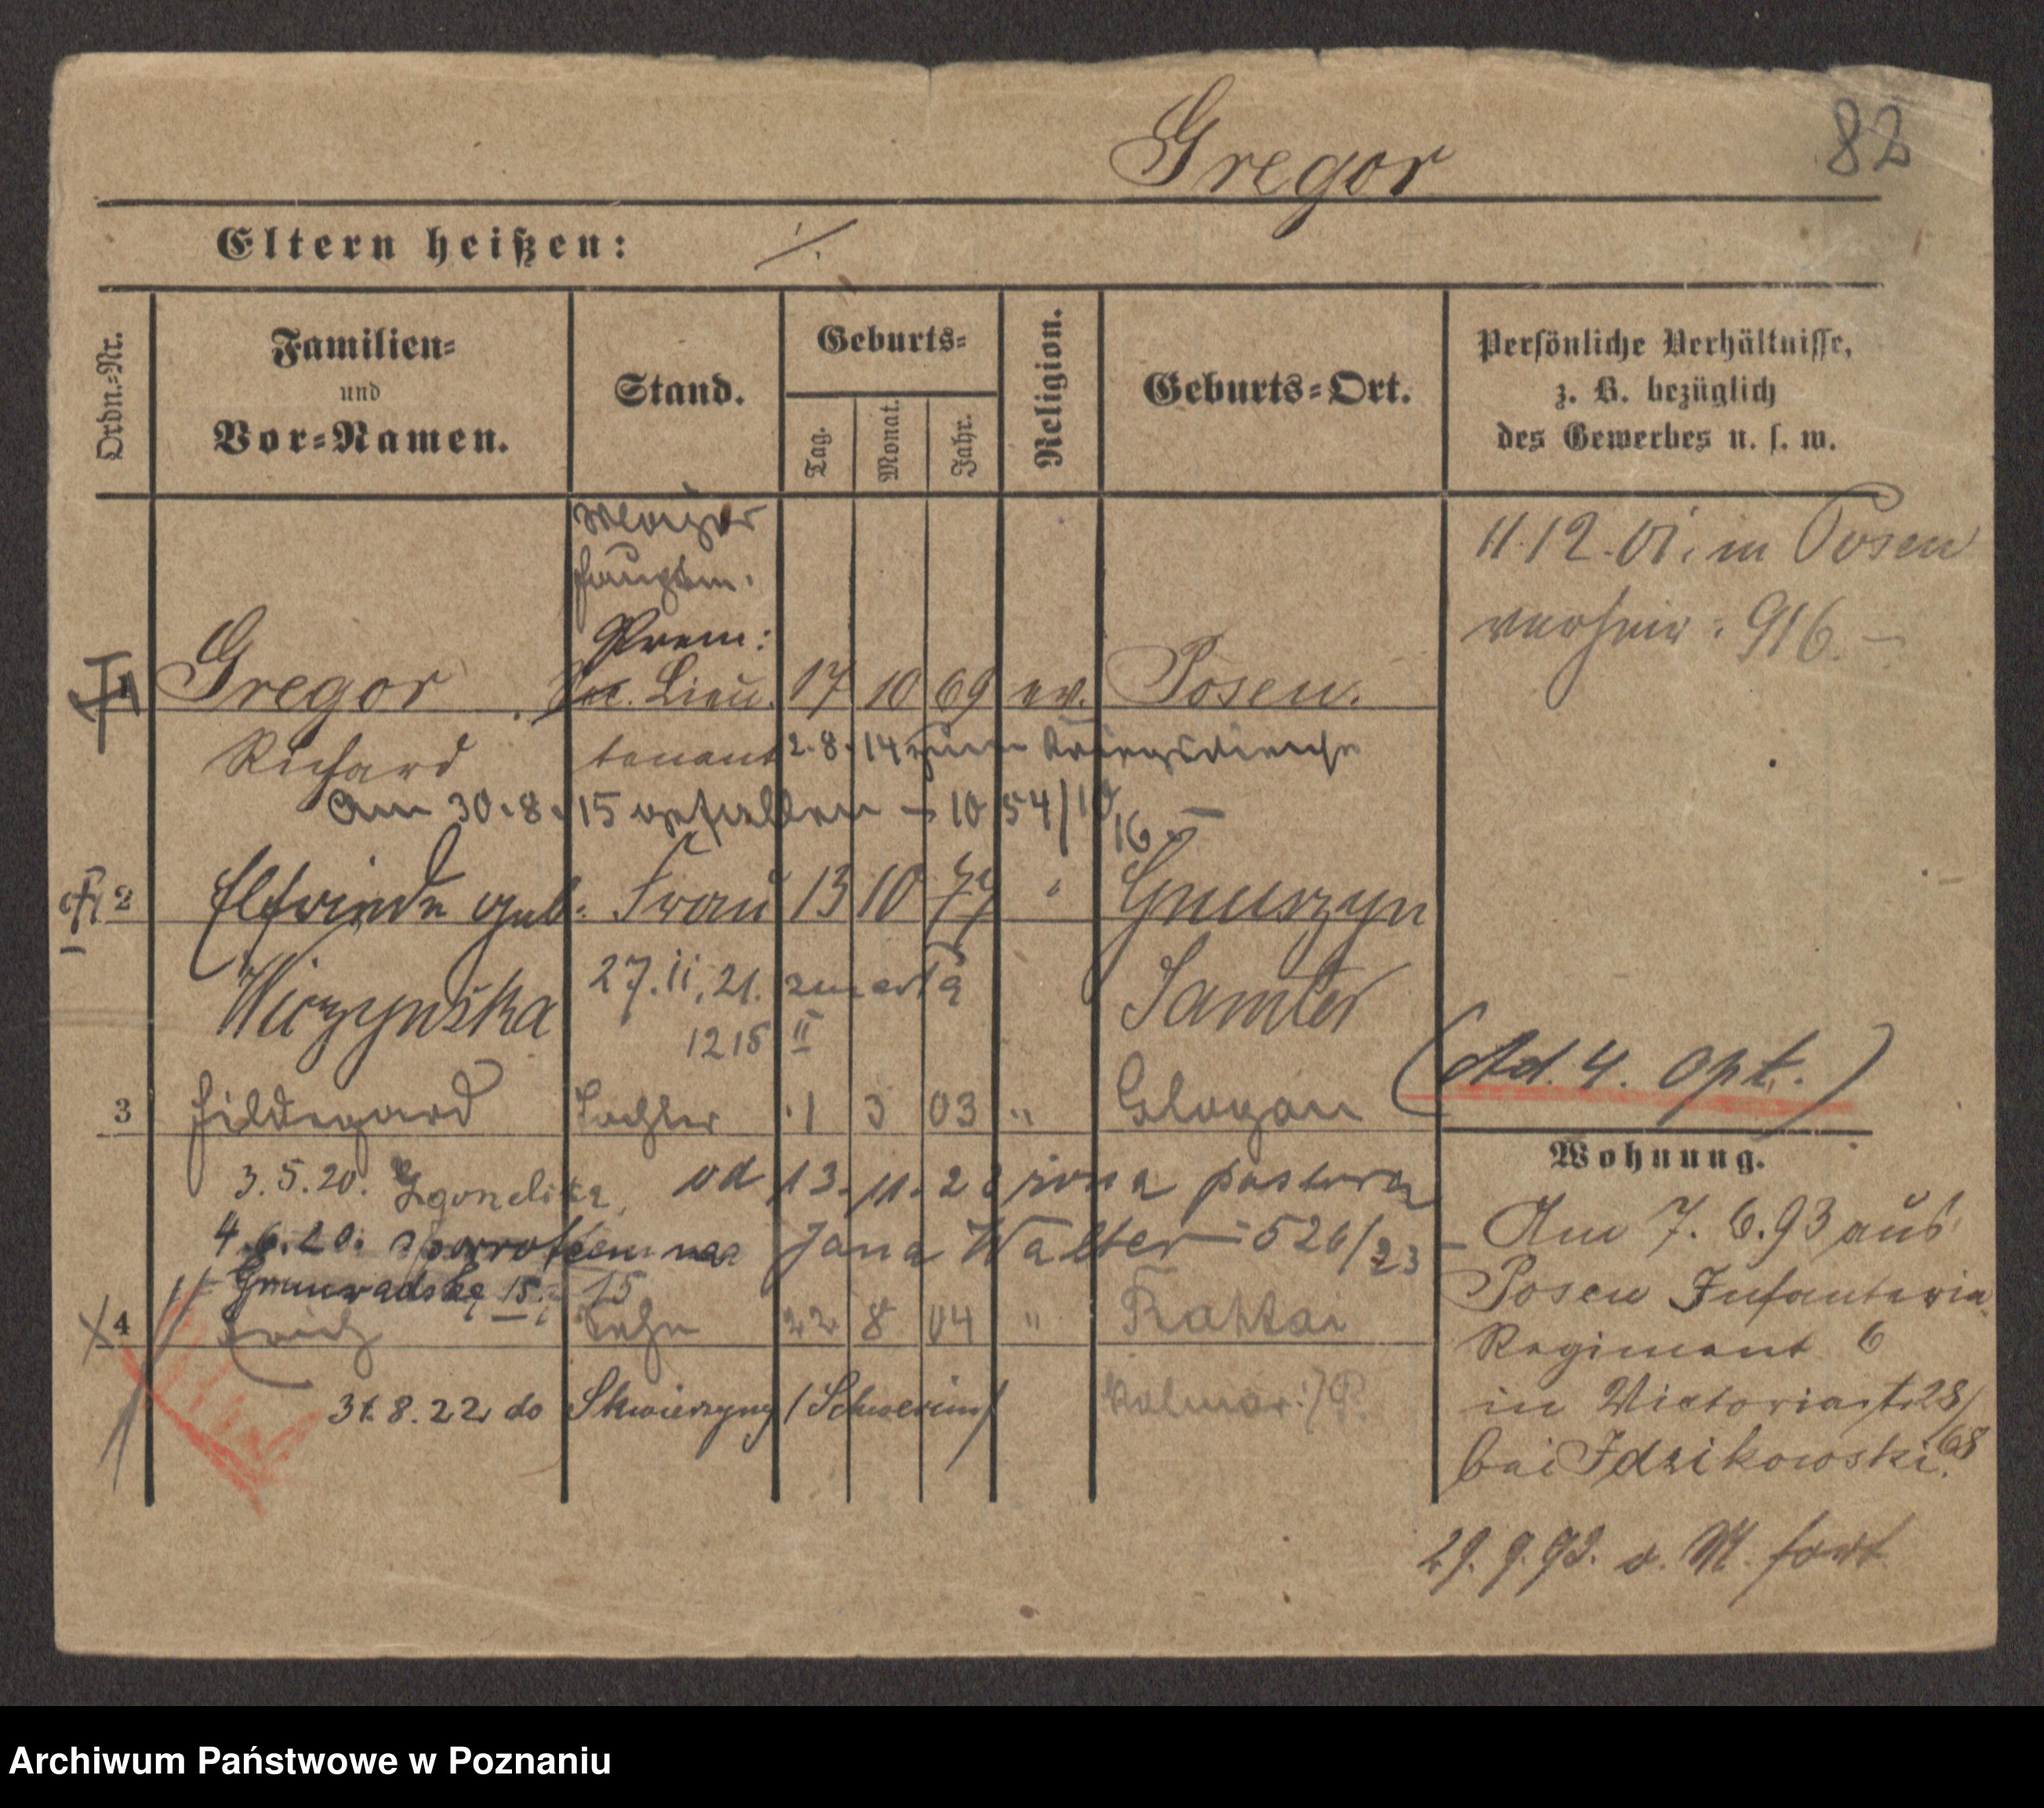 82
Gregor
Eltern heißen: ./.
Ordn.=Nr.
Familien=
und
Vor=Namen.
Stand.
Geburts=
Tag.
Monat.
Jahr.
Religion.
Geburts=Ort.
Persönliche Verhältnisse,
z. B. bezüglich
des Gewerbes u. s. w.
Major
Hauptm.
Prem:
1 Gregor Sec. Lieu. 17 10 69 ev. Posen.
Richard tenant 2.8.14 zum Kriegsdienste
Am 30.8.15 gefallen – 1054/10 16 –
2 Elfriede geb. Frau 13 10 79 " Gnuszyn
Wiczynska 27.II.21. zmarła Samter
1215 II
3 Hildegard Tochter 1 3 03 " Glogau
3.5.20. od 13.11.23 żona pastora
4.6.20. Jana Walter – 526/23
Grunwadska 15. 15
4 Erich Sohn 22 8 04 "
31.8.22 do Skwierzyny (Schwerin) Kolmar i/P.
11.12.01. in Posen
verheir. 916. –
(Ad. 4. Opt.)
Wohnung.
Am 7.6.93 aus
Posen Infanterie
Regiment 6
in Victoriastr 28/
bei Idzikowski. 68
29.9.93. v. M. fort
Archiwum Państwowe w Poznaniu